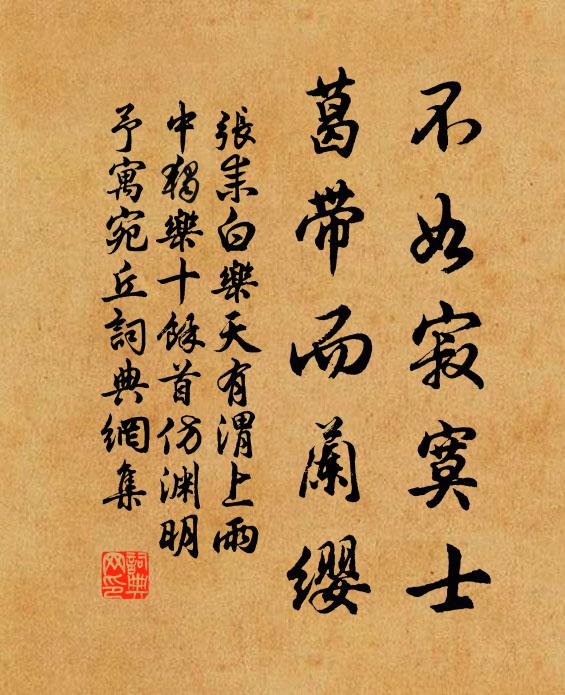 不如寂寞士
葛带而蘭纓
張耒白樂天有渭上雨
中獨樂十餘首仿渊明
予寓宛丘詞典網集
詞典
网印